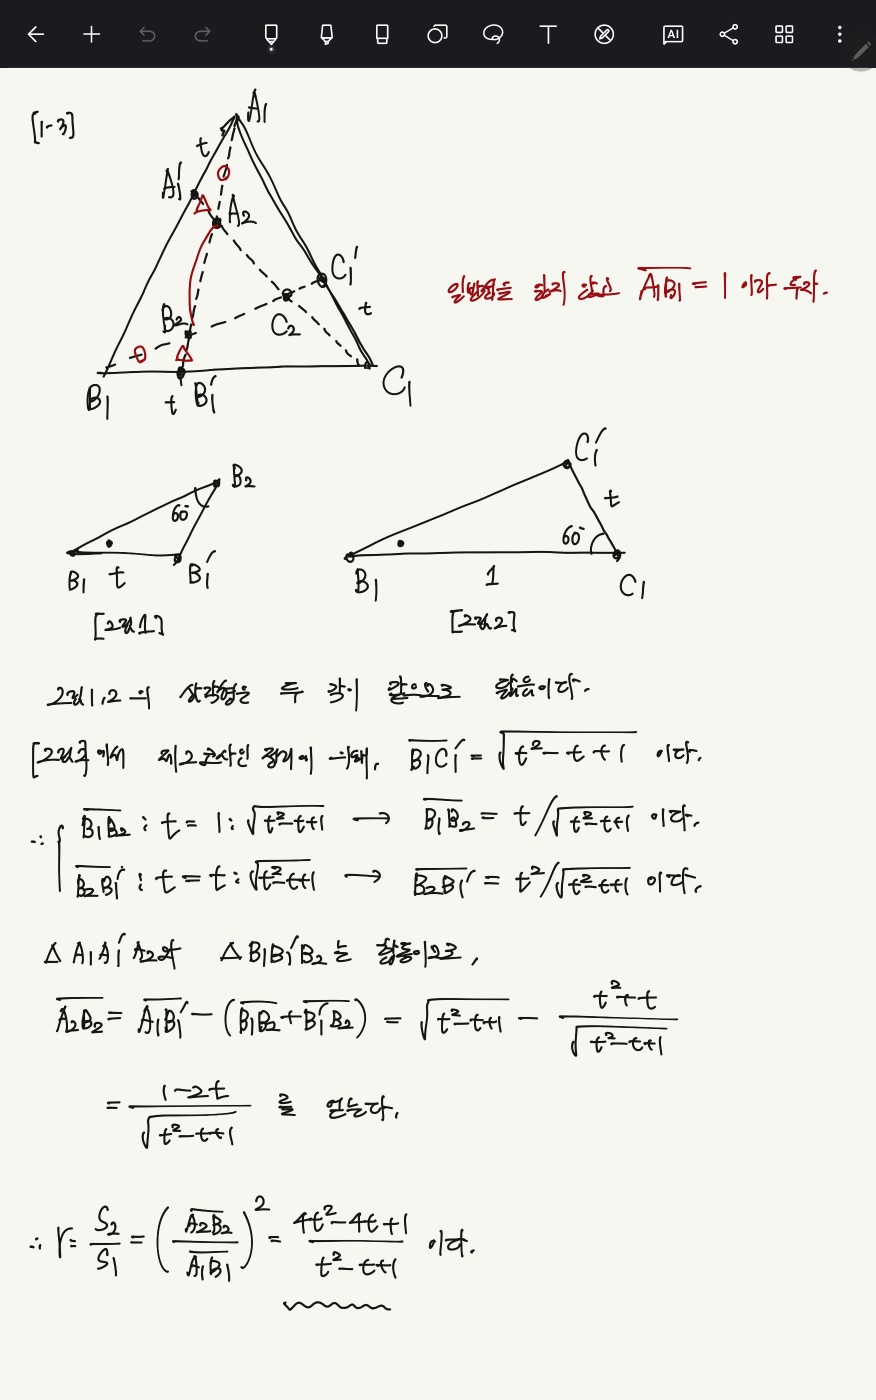 AI
[1-3]
A₁
t
A₁′
A₂
C₁′
t
C₂
B₂
B₁
t
B₁′
C₁
일반성을 잃지 않고 A̅₁̅B̅₁̅ = 1 이라 두자.
B₂
60°
B₁
t
B₁′
[그림1]
C₁′
t
60°
B₁
1
C₁
[그림2]
그림1,2의 삼각형은 두 각이 같으므로 닮음이다.
[그림2]에서 제2코사인 정리에 의해, B̅₁̅C̅₁̅′ = √(t²-t+1) 이다.
∴ { B̅₁̅B̅₂̅ : t = 1 : √(t²-t+1) → B̅₁̅B̅₂̅ = t/√(t²-t+1) 이다.
B̅₂̅B̅₁̅′ : t = t : √(t²-t+1) → B̅₂̅B̅₁̅′ = t²/√(t²-t+1) 이다.
△A₁A₁′A₂와 △B₁B₁′B₂는 합동이므로,
A̅₂̅B̅₂̅ = A̅₁̅B̅₁̅′ - (B̅₁̅B̅₂̅ + B̅₁̅′B̅₂̅) = √(t²-t+1) - (t²+t)/√(t²-t+1)
= (1-2t)/√(t²-t+1) 를 얻는다.
∴ r = S₂/S₁ = (A̅₂̅B̅₂̅/A̅₁̅B̅₁̅)² = (4t²-4t+1)/(t²-t+1) 이다.